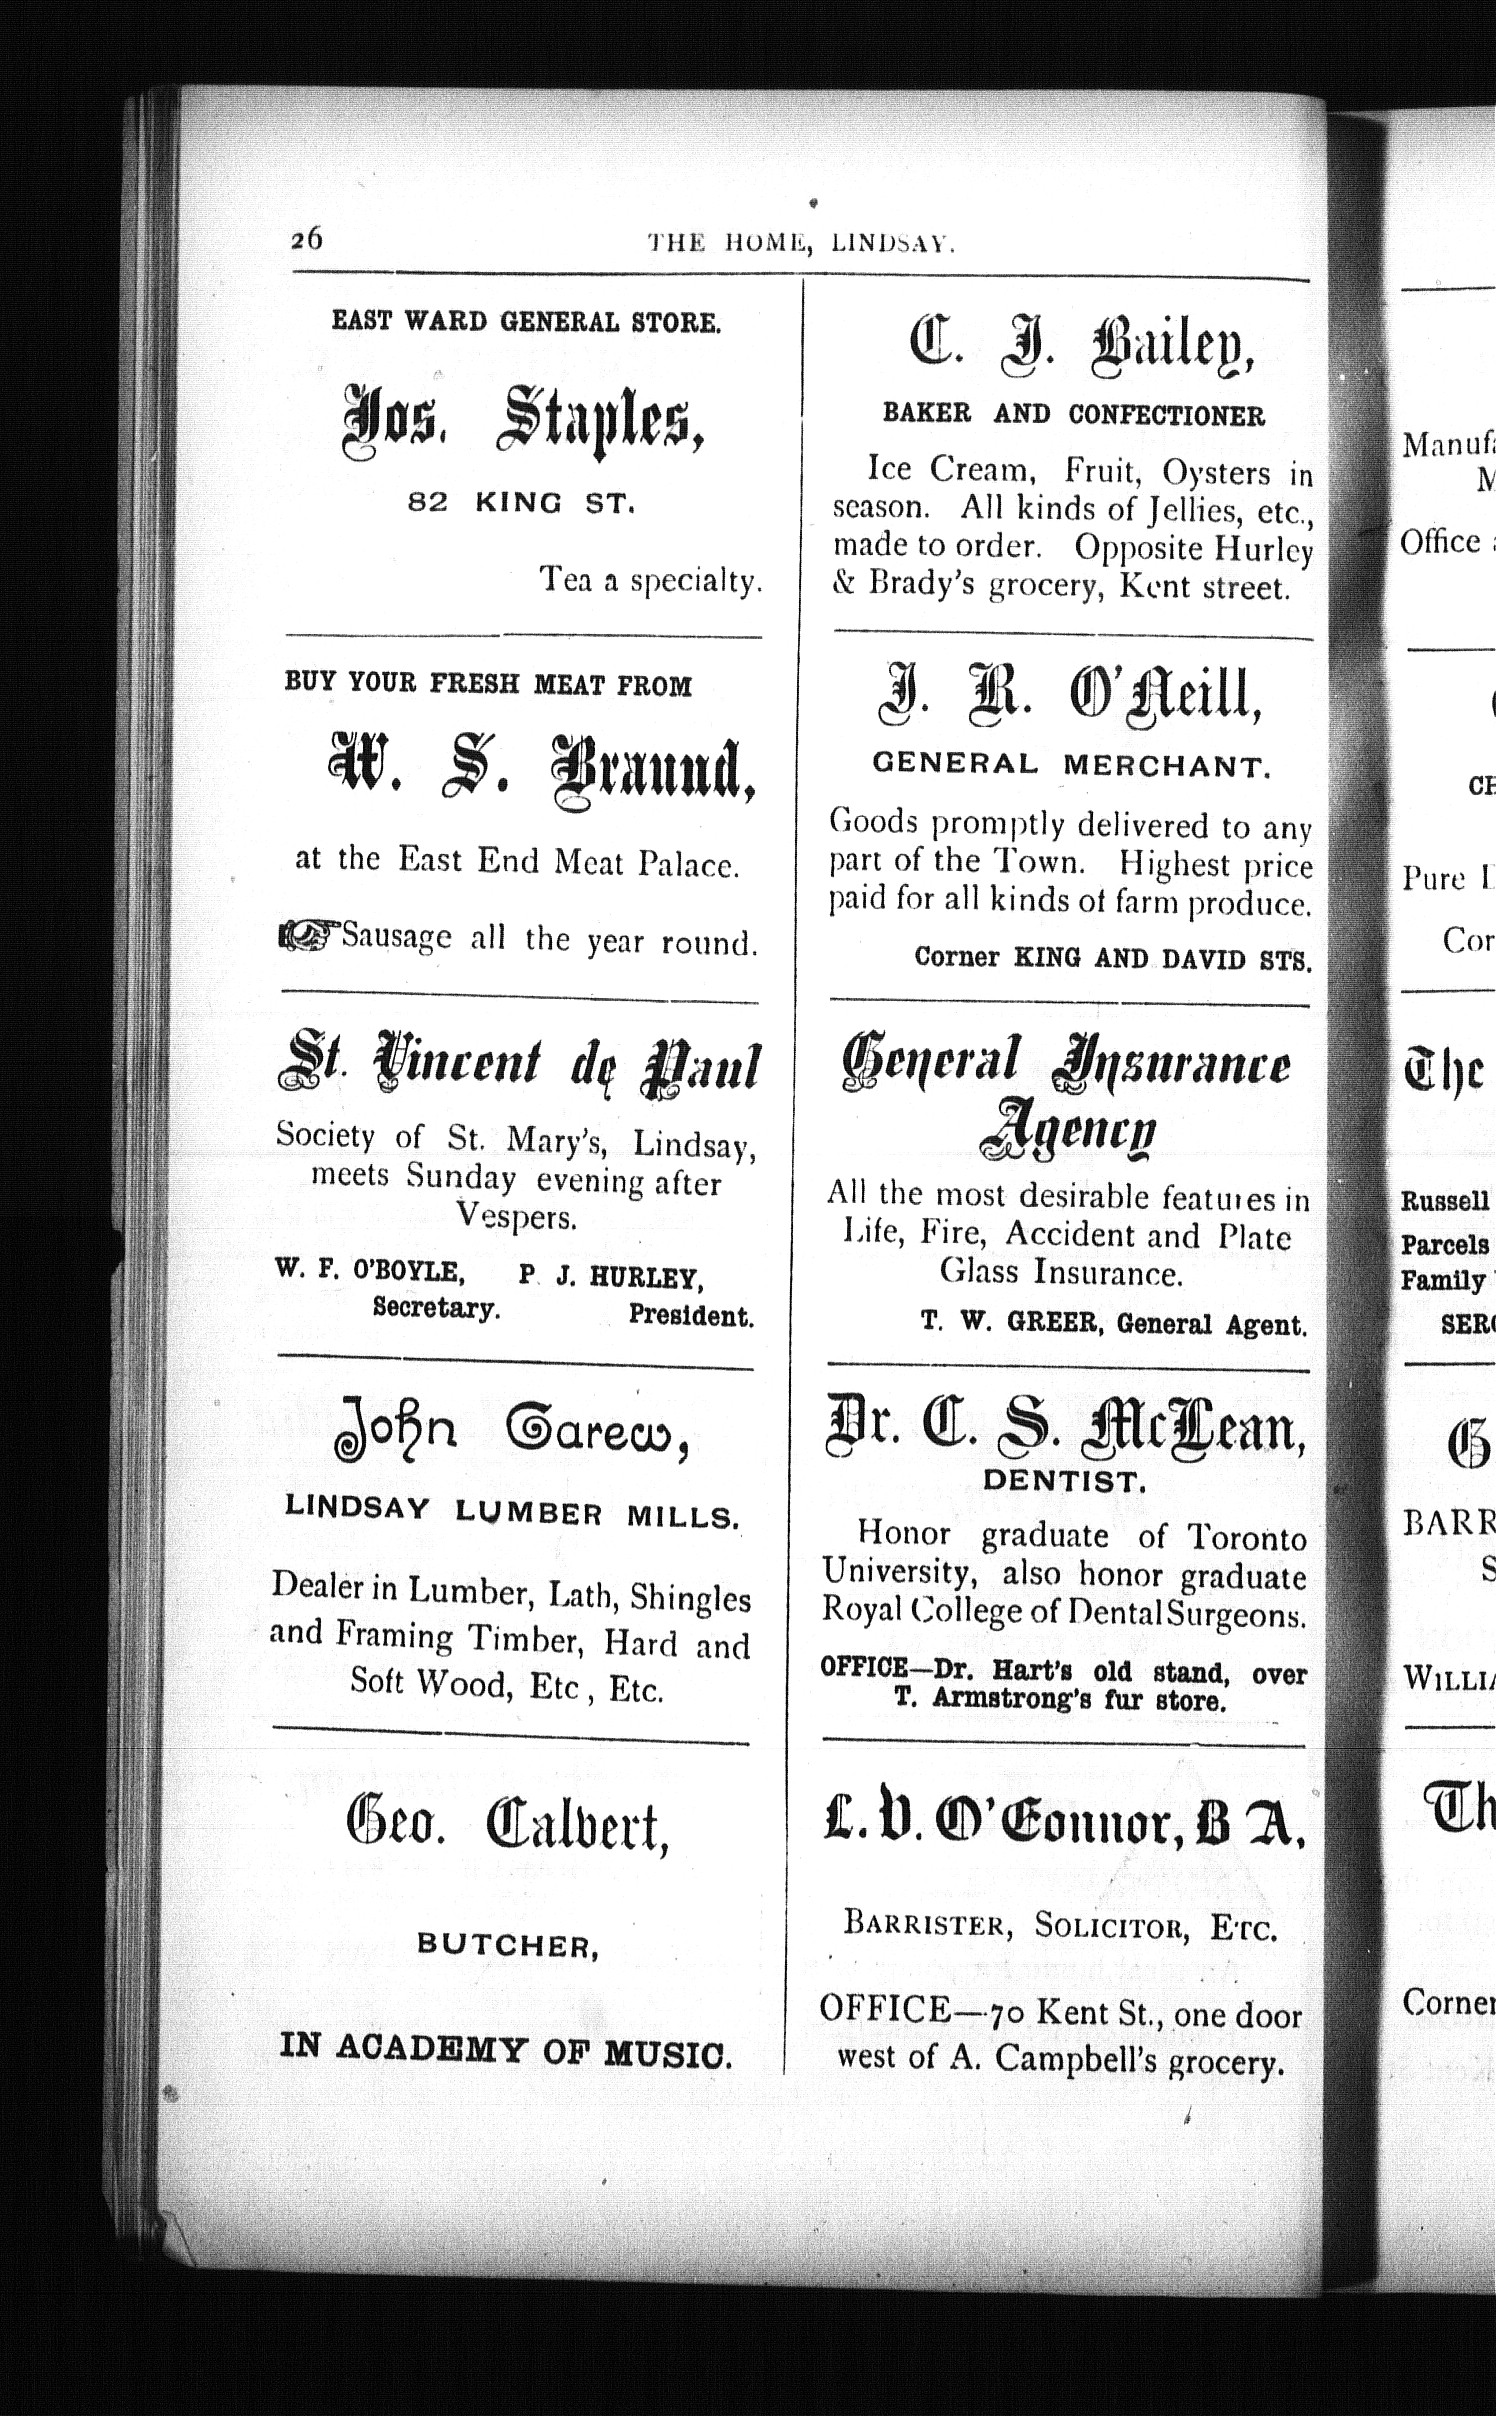 26
THE HOME, LINDSAY.
EAST WARD GENERAL STORE.
Jos. Staples,
82 KING ST.
Tea a specialty.
BUY YOUR FRESH MEAT FROM
W. S. Braund,
at the East End Meat Palace.
☞Sausage all the year round.
St. Vincent de Paul
Society of St. Mary's, Lindsay,
meets Sunday evening after
Vespers.
W. F. O'BOYLE, P. J. HURLEY,
Secretary. President.
John Carew,
LINDSAY LUMBER MILLS.
Dealer in Lumber, Lath, Shingles
and Framing Timber, Hard and
Soft Wood, Etc, Etc.
Geo. Calvert,
BUTCHER,
IN ACADEMY OF MUSIC.
C. J. Bailey,
BAKER AND CONFECTIONER
Ice Cream, Fruit, Oysters in
season. All kinds of Jellies, etc.,
made to order. Opposite Hurley
& Brady's grocery, Kent street.
J. R. O'Neill,
GENERAL MERCHANT.
Goods promptly delivered to any
part of the Town. Highest price
paid for all kinds of farm produce.
Corner KING AND DAVID STS.
General Insurance
Agency
All the most desirable features in
Life, Fire, Accident and Plate
Glass Insurance.
T. W. GREER, General Agent.
Dr. C. S. McLean,
DENTIST.
Honor graduate of Toronto
University, also honor graduate
Royal College of Dental Surgeons.
OFFICE—Dr. Hart's old stand, over
T. Armstrong's fur store.
L. V. O'Connor, B A,
BARRISTER, SOLICITOR, ETC.
OFFICE—70 Kent St., one door
west of A. Campbell's grocery.
Office
Pure
The
Russell
Parcels
Family
Corner